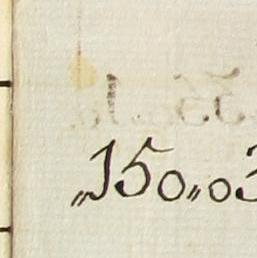 „150„03